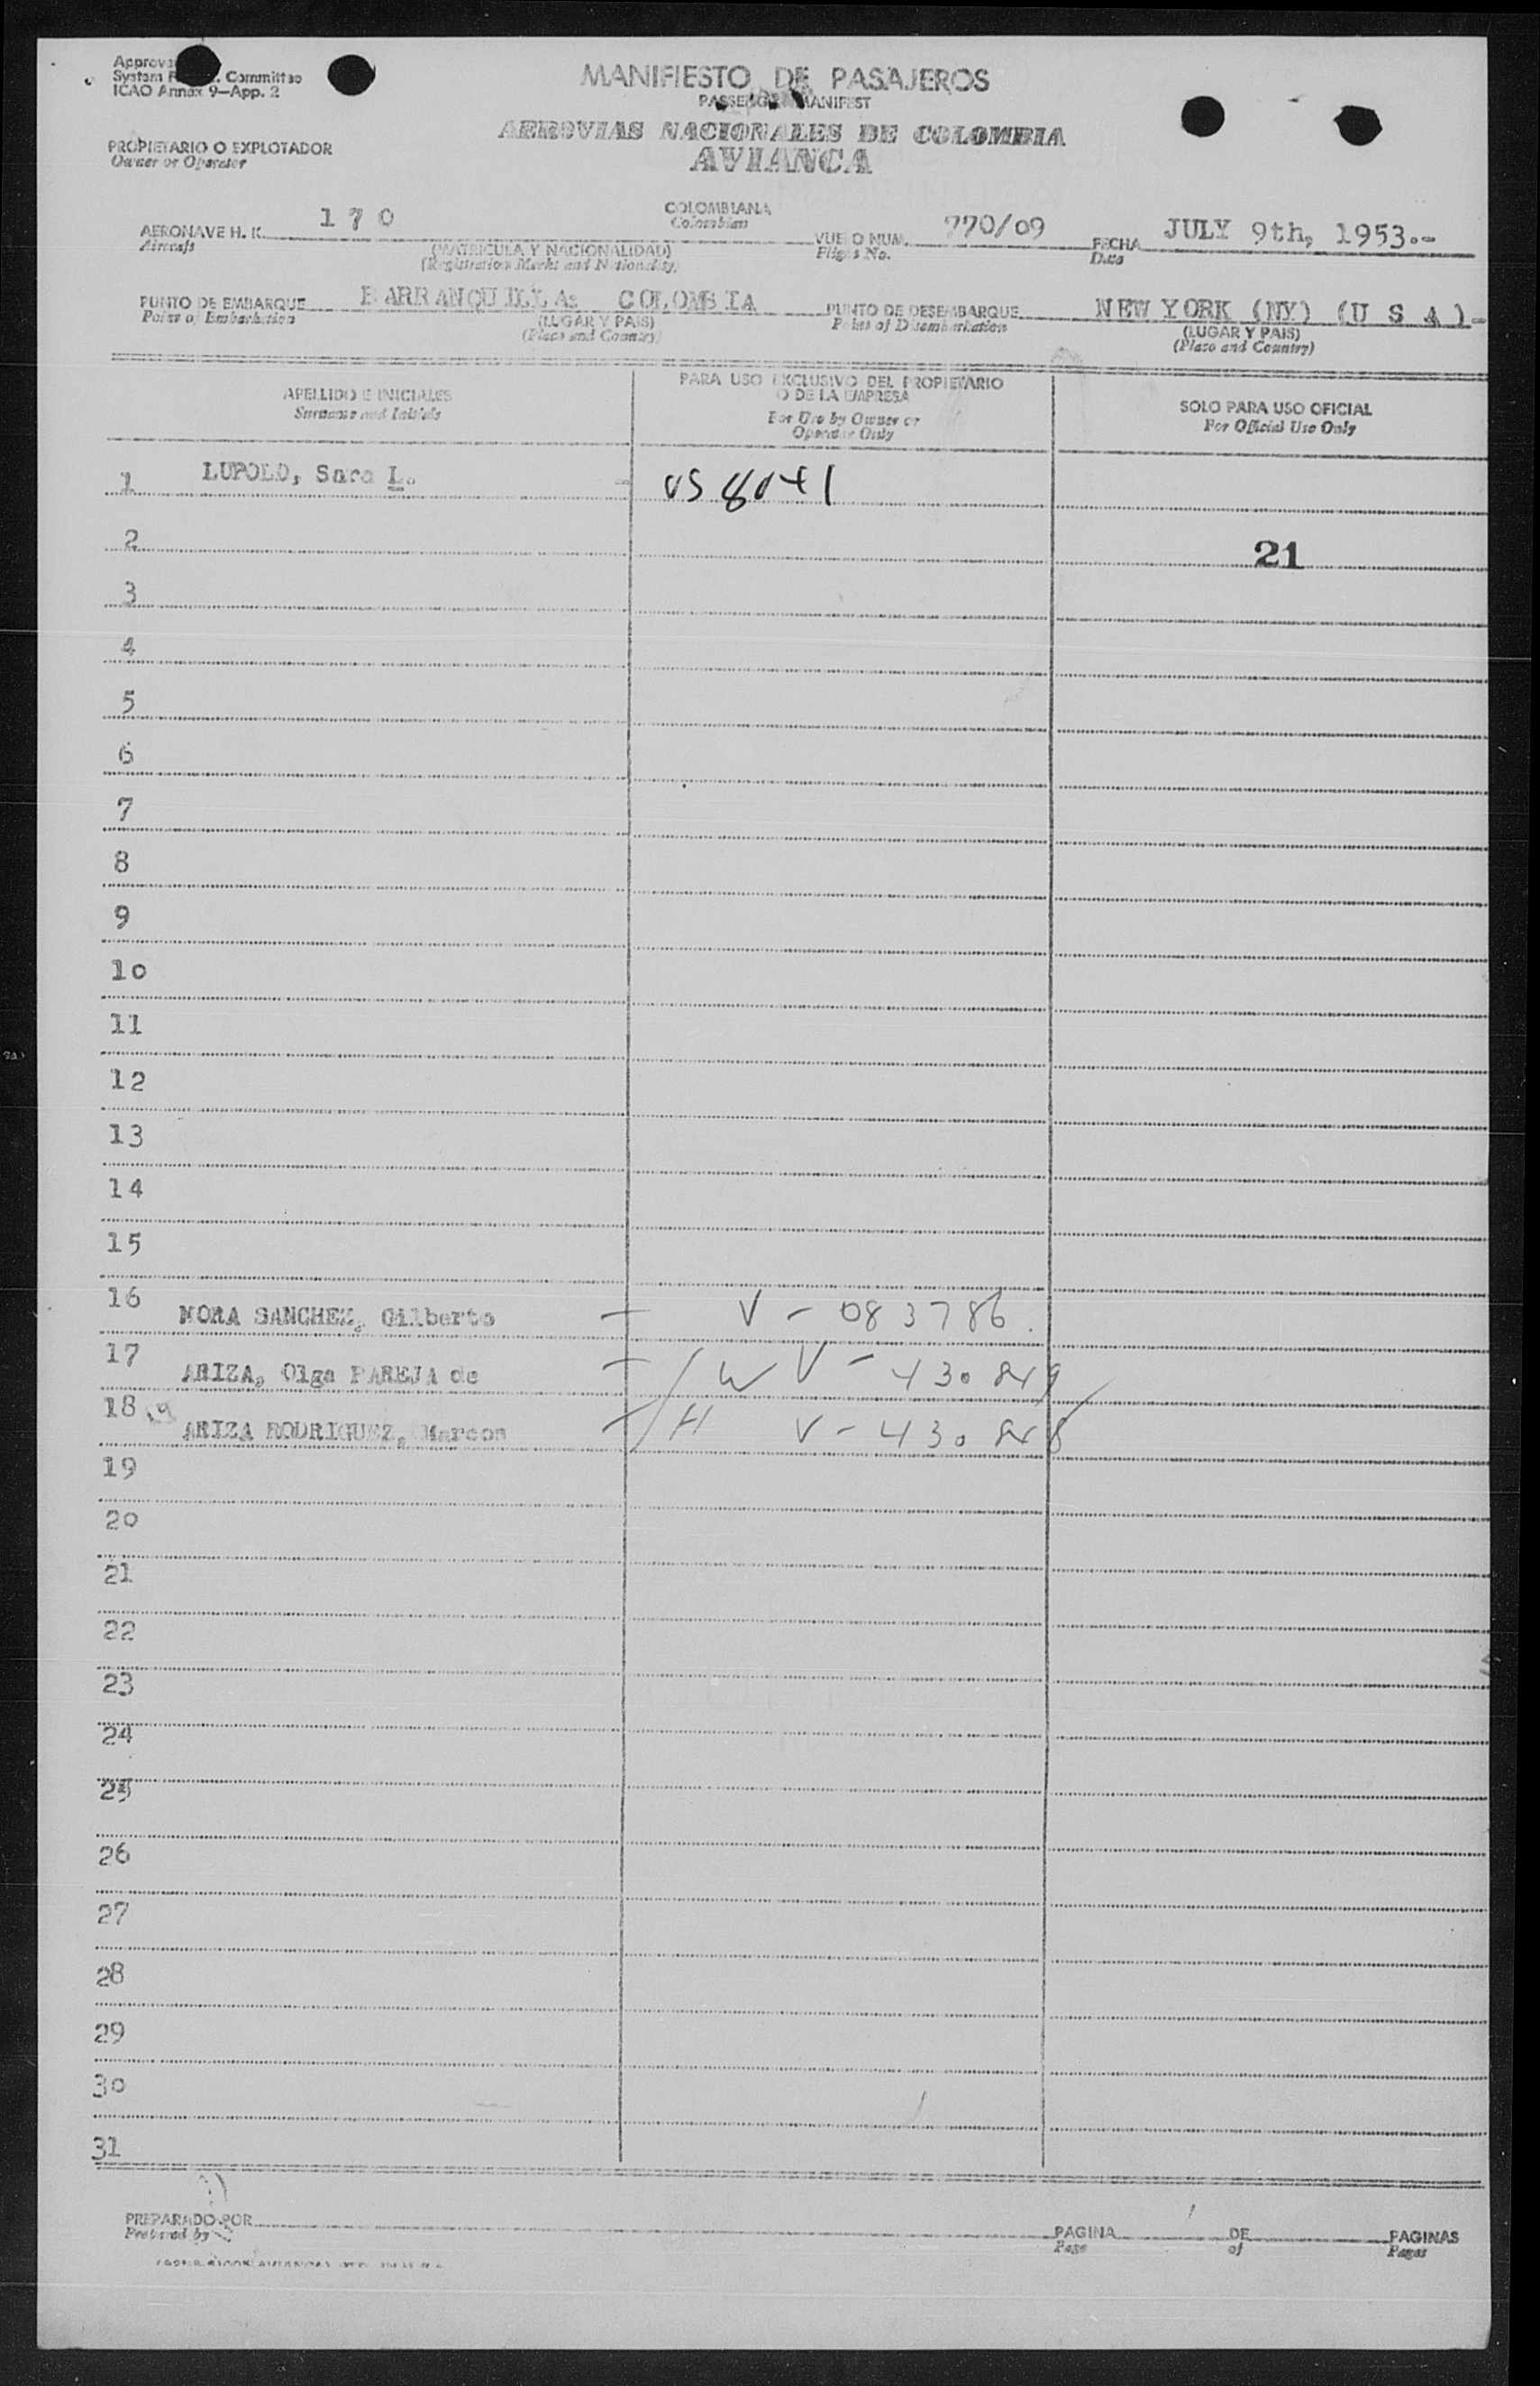 Approved
System Committee
ICAO Annex 9—App. 2
MANIFIESTO DE PASAJEROS
PASSENGER MANIFEST
AEROVIAS NACIONALES DE COLOMBIA
AVIANCA
PROPIETARIO O EXPLOTADOR
Owner or Operator
AERONAVE H. K. 170 COLOMBIANA VUELO NUM. 770/09 FECHA JULY 9th, 1953.-
Aircraft Colombian Flight No. Date
(MATRICULA Y NACIONALIDAD)
(Registration Marks and Nationality)
PUNTO DE EMBARQUE BARRANQUILLA: COLOMBIA PUNTO DE DESEMBARQUE NEW YORK (NY) (U S A)-
Point of Embarkation (LUGAR Y PAIS) Point of Disembarkation (LUGAR Y PAIS)
(Place and Country) (Place and Country)
APELLIDO E INICIALES
Surname and Initials
PARA USO EXCLUSIVO DEL PROPIETARIO
O DE LA EMPRESA
For Use by Owner or
Operator Only
SOLO PARA USO OFICIAL
For Official Use Only
1 LUPOLD, Sara L. - US 8041
2 21
3
4
5
6
7
8
9
10
11
12
13
14
15
16 MORA SANCHEZ, Gilberto - V - 083786.
17 ARIZA, Olga PAREJA de - W V - 430849
18 ARIZA RODRIGUEZ, Marcos - H V - 430848
19
20
21
22
23
24
25
26
27
28
29
30
31
PREPARADO POR PAGINA 1 DE PAGINAS
Prepared by Page of Pages